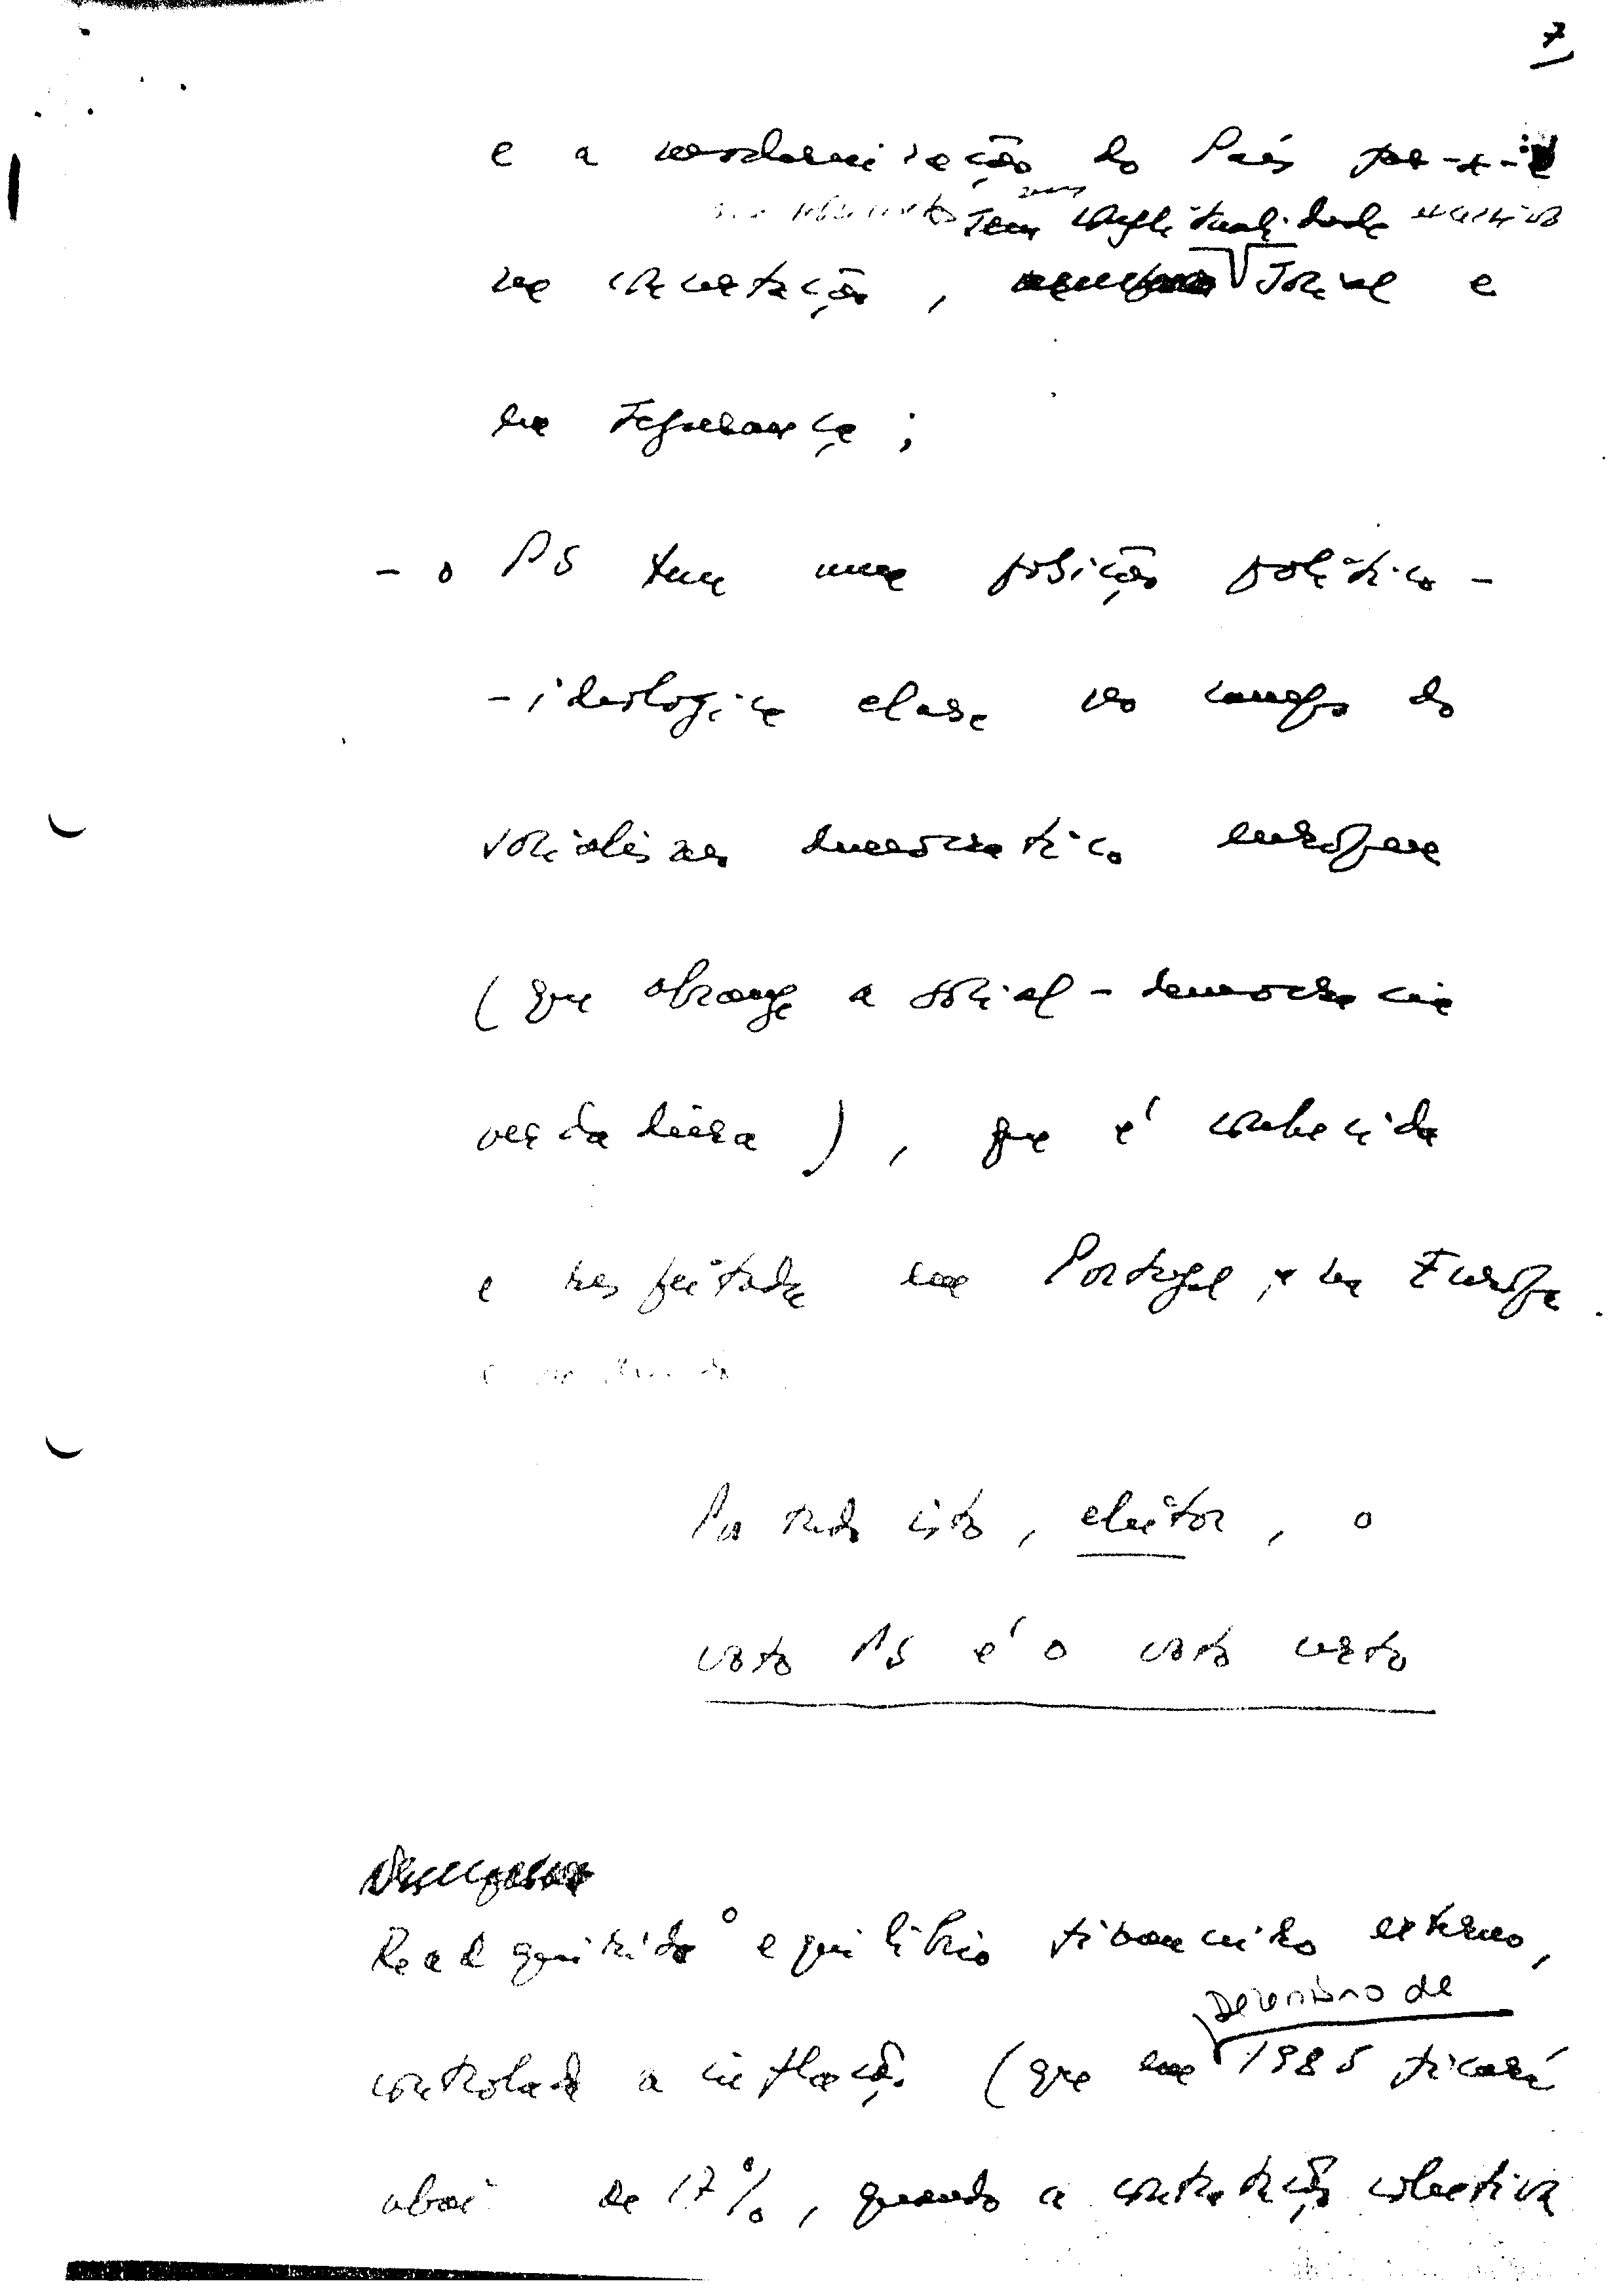 7
e a modernização do País
sem conflitualidade excessiva
na concertação, social e
na segurança;
- o PS tem uma posição político-
-ideologica clara no campo do
socialismo democrático europeu
(que abrange a social-democracia
verdadeira), que é conhecida
e respeitada em Portugal, na Europa
e no
Por tudo isto, eleitor, o
voto PS é o voto certo
Readquirido o equilíbrio financeiro externo,
Dezembro de
controlada a inflação (que em 1985 ficará
de 17%, quando a contratação colectiva